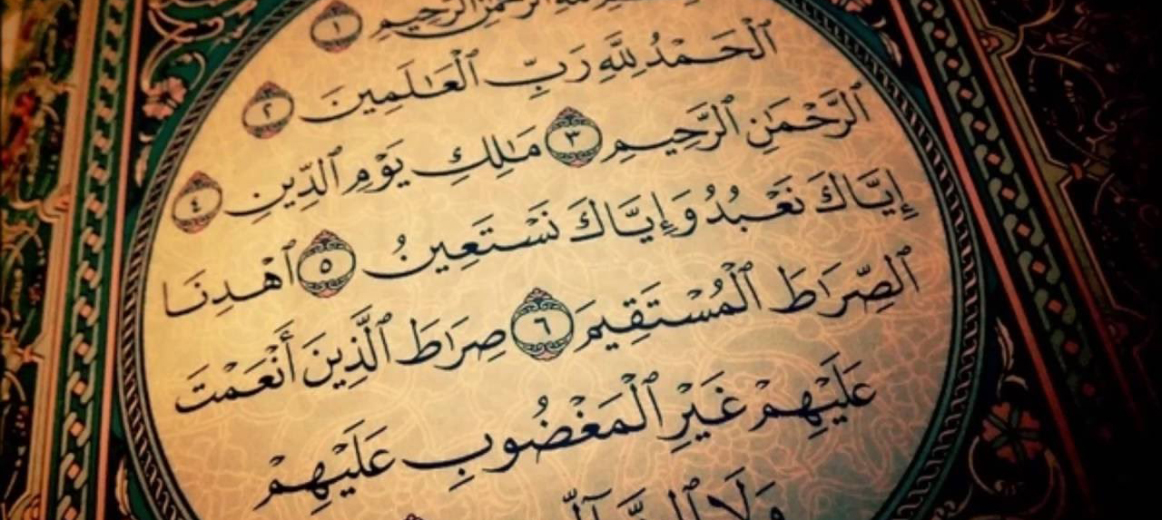 ٱللَّهِ ٱلرَّحْمَٰنِ ٱلرَّحِيمِ ١
ٱلْحَمْدُ لِلَّهِ رَبِّ ٱلْعَٰلَمِينَ ٢
ٱلرَّحْمَٰنِ ٱلرَّحِيمِ ٣ مَٰلِكِ يَوْمِ ٱلدِّينِ ٤
إِيَّاكَ نَعْبُدُ وَإِيَّاكَ نَسْتَعِينُ ٥ ٱهْدِنَا
ٱلصِّرَٰطَ ٱلْمُسْتَقِيمَ ٦ صِرَٰطَ ٱلَّذِينَ أَنْعَمْتَ
عَلَيْهِمْ غَيْرِ ٱلْمَغْضُوبِ عَلَيْهِمْ
وَلَا